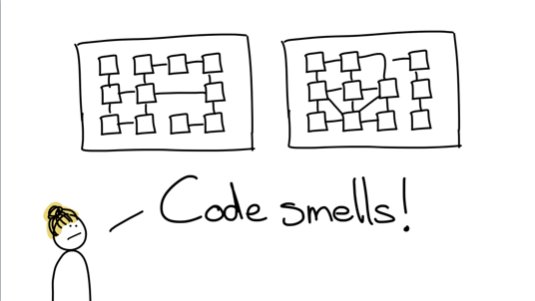 Code smells!